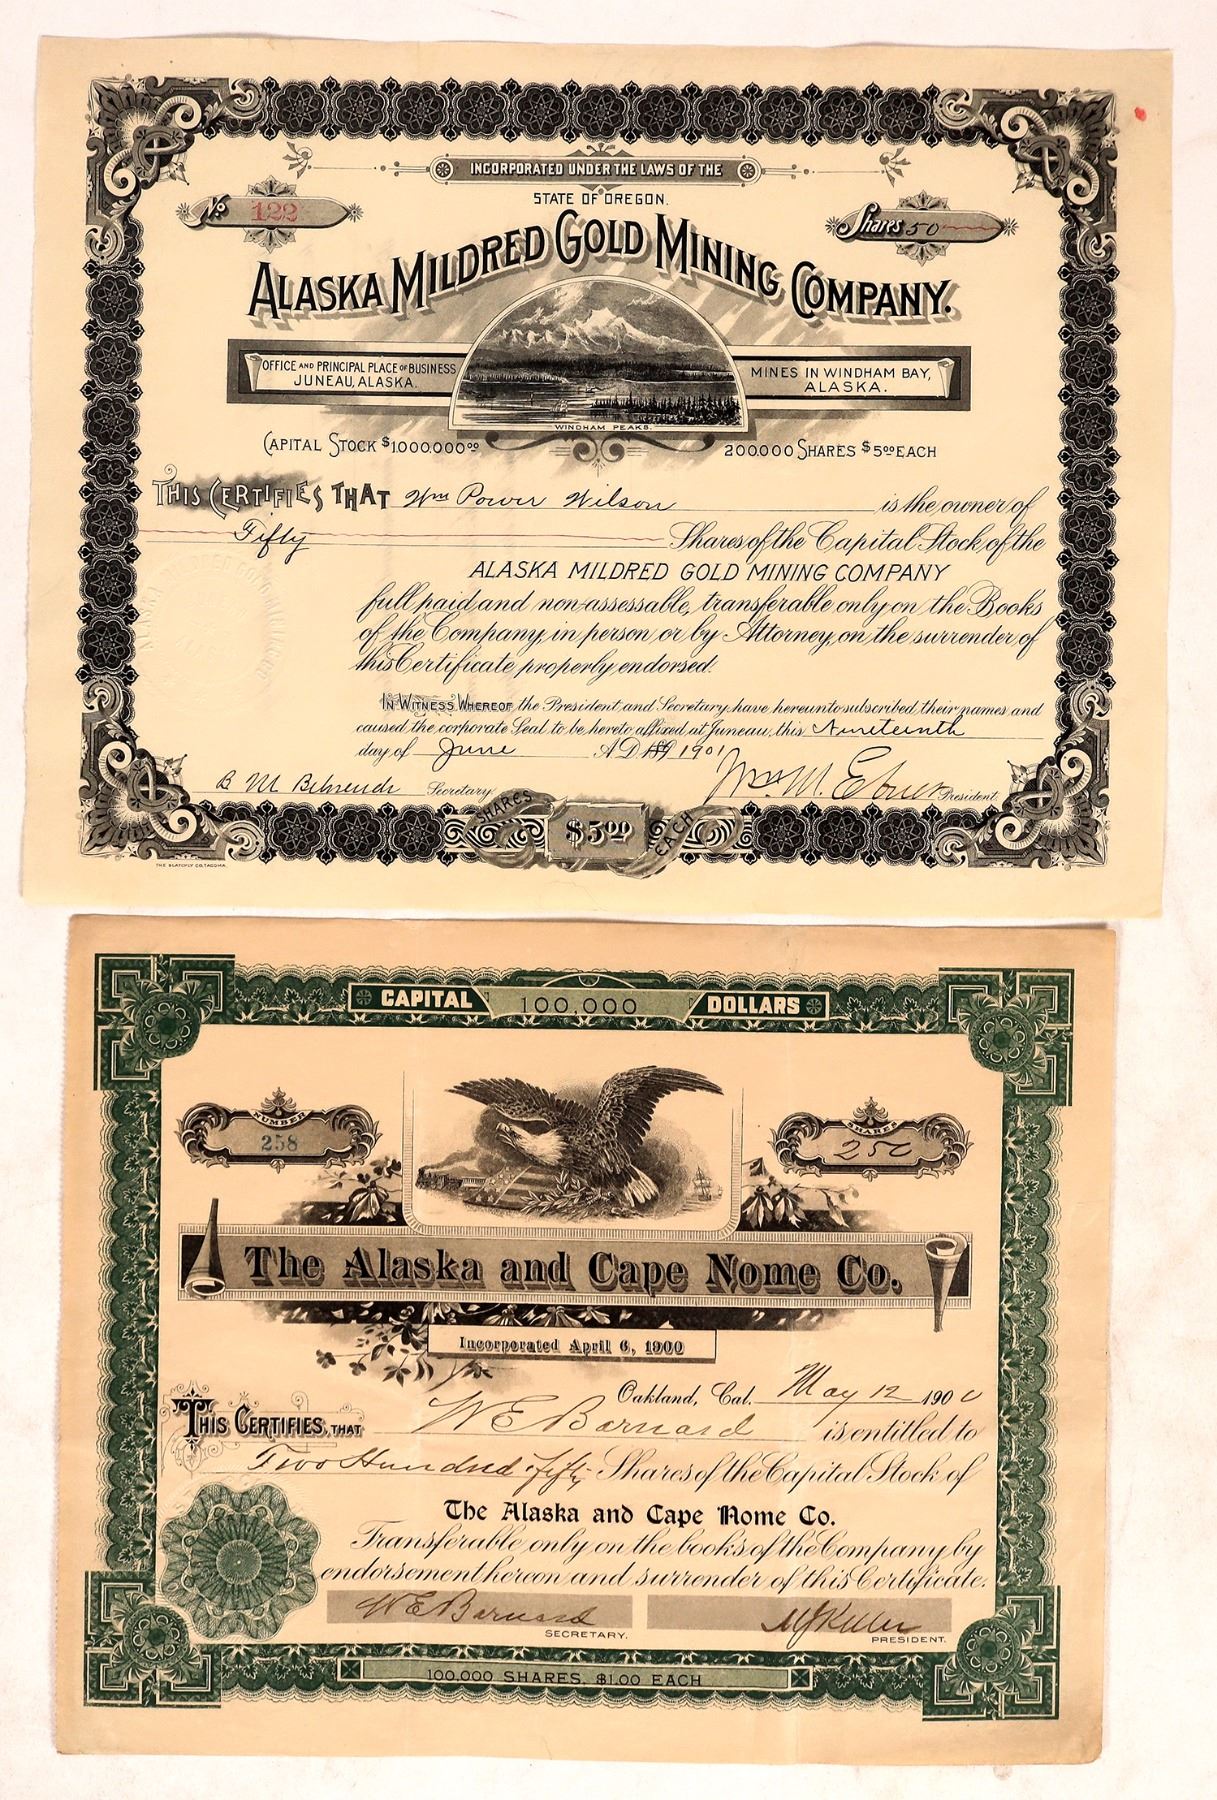 INCORPORATED UNDER THE LAWS OF THE
STATE OF OREGON.
No. 122
Shares 50
ALASKA MILDRED GOLD MINING COMPANY.
OFFICE AND PRINCIPAL PLACE OF BUSINESS
JUNEAU, ALASKA.
MINES IN WINDHAM BAY,
ALASKA.
WINDHAM PEAKS.
CAPITAL STOCK $1.000.000.00
200.000 SHARES $5.00 EACH
THIS CERTIFIES THAT Wm Power Wilson is the owner of
Fifty Shares of the Capital Stock of the
ALASKA MILDRED GOLD MINING COMPANY
full paid and non-assessable, transferable only on the Books
of the Company, in person or by Attorney, on the surrender of
this Certificate properly endorsed.
IN WITNESS WHEREOF, the President and Secretary have hereunto subscribed their names and
caused the corporate Seal to be hereto affixed at Juneau, this Nineteenth
day of June A.D. 189 1901
B M Behrends Secretary.
Wm M. Ebner President.
SHARES $5.00 EACH
CAPITAL 100,000 DOLLARS
NUMBER
258
SHARES
250
The Alaska and Cape Nome Co.
Incorporated April 6, 1900
Oakland, Cal. May 12 1900
THIS CERTIFIES, THAT W E Barnard is entitled to
Two Hundred fifty Shares of the Capital Stock of
The Alaska and Cape Nome Co.
Transferable only on the books of the Company by
endorsement hereon and surrender of this Certificate.
W E Barnard
SECRETARY.
M J Keller
PRESIDENT.
100,000 SHARES, $1.00 EACH